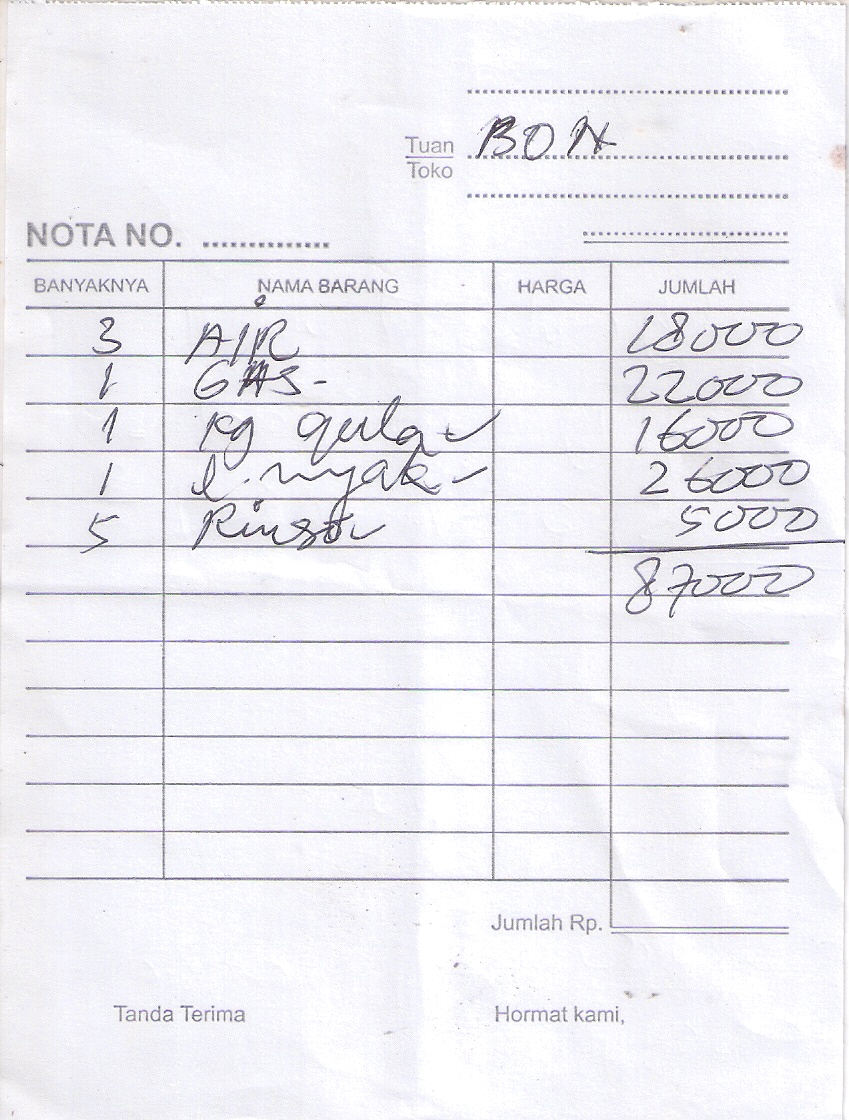 BON
Tuan
Toko
NOTA NO. .............
BANYAKNYA NAMA BARANG HARGA JUMLAH
3 AIR 18000
1 GAS- 22000
1 kg gula 16000
1 l. nyak 26000
5 Rinso 5000
87000
Jumlah Rp.
Tanda Terima Hormat kami,